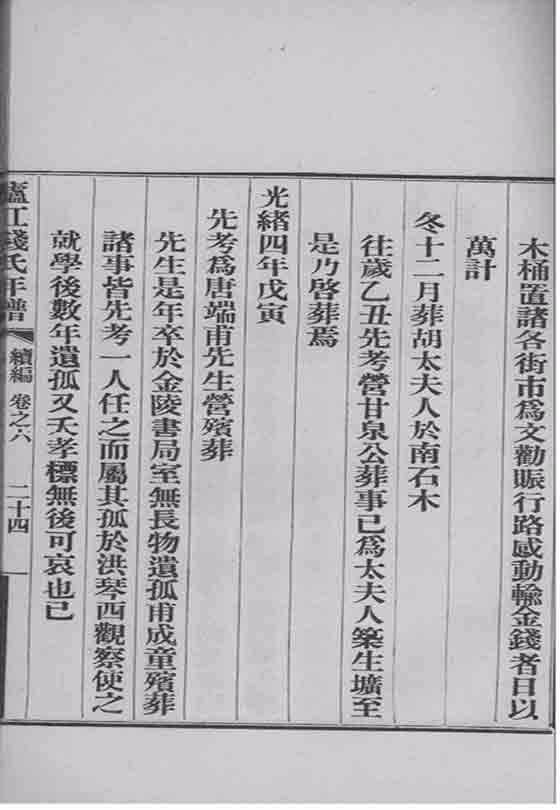 木桶置諸各街市爲文勸賑行路感動輸金錢者日以
萬計
冬十二月葬胡太夫人於南石木
往歲乙丑先考營甘泉公葬事已爲太夫人築生壙至
是乃啓葬焉
光緒四年戊寅
先考爲唐端甫先生營殯葬
先生是年卒於金陵書局室無長物遺孤甫成童殯葬
諸事皆先考一人任之而屬其孤於洪琴西觀察使之
就學後數年遺孤又夭孝標無後可哀也已
廬江錢氏年譜 續編 卷之六 二十四